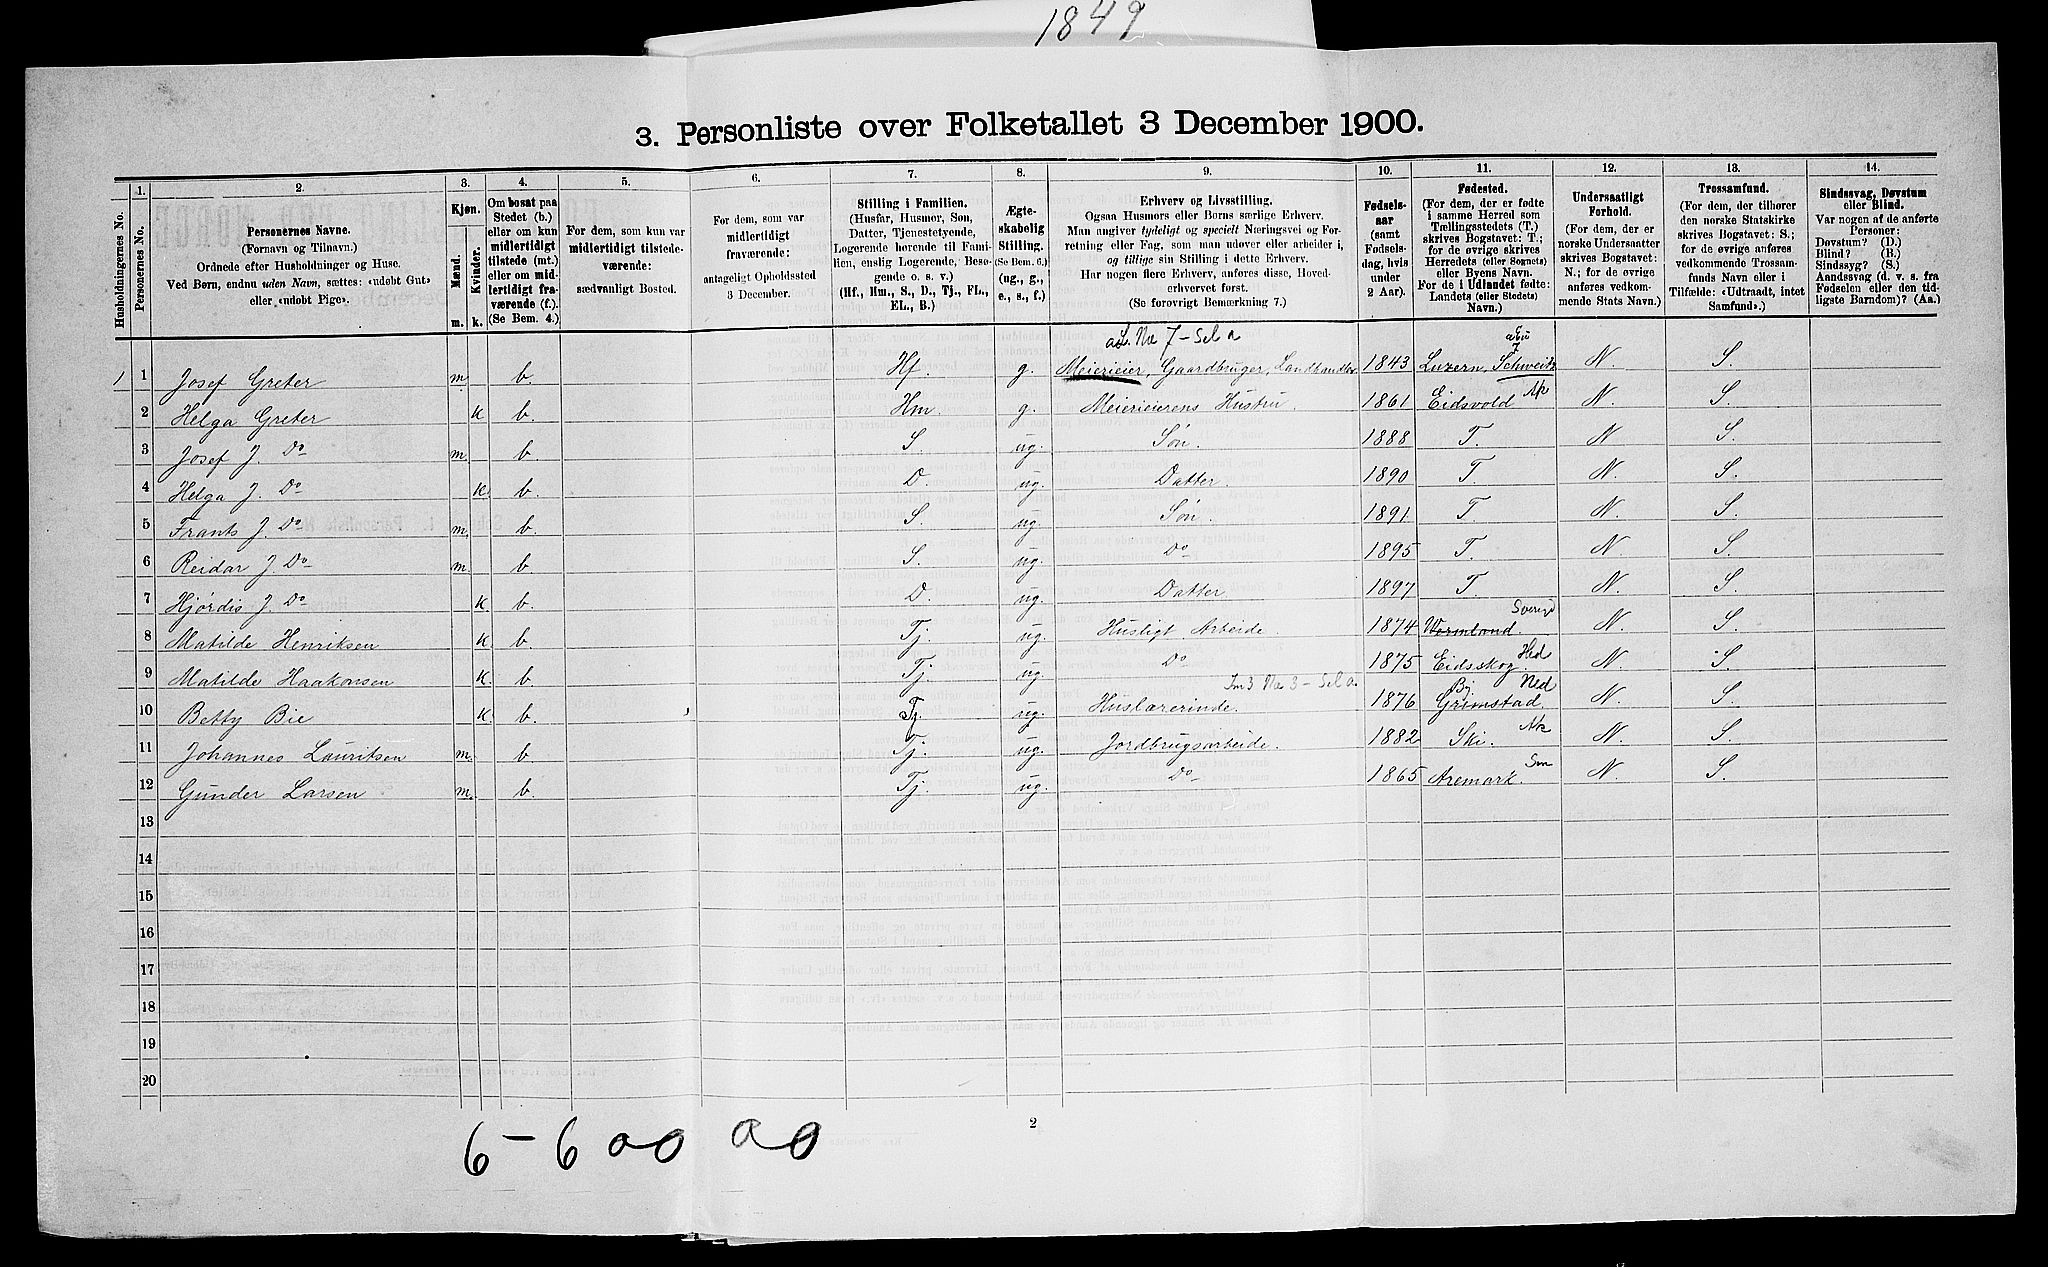 1849
3. Personliste over Folketallet 3 December 1900.
Husholdningernes No.
1.
Personernes No.
2.
Personernes Navne.
(Fornavn og Tilnavn.)
Ordnede efter Husholdninger og Huse.
Ved Børn, endnu uden Navn, sættes: «udøbt Gut»
eller «udøbt Pige».
3.
Kjøn.
Mænd.
Kvinder.
m. k.
4.
Om bosat paa
Stedet (b.)
eller om kun
midlertidigt
tilstede (mt.)
eller om mid-
lertidigt fra-
værende (f.).
(Se Bem. 4.)
5.
For dem, som kun var
midlertidigt tilstede-
værende:
sædvanligt Bosted.
6.
For dem, som var
midlertidigt
fraværende:
antageligt Opholdssted
3 December.
7.
Stilling i Familien.
(Husfar, Husmor, Søn,
Datter, Tjenestetyende,
Logerende hørende til Fami-
lien, enslig Logerende, Besø-
gende o. s. v.)
(Hf., Hm., S., D., Tj., FL.,
EL., B.)
8.
Ægte-
skabelig
Stilling.
(Se Bem. 6.)
(ug., g.,
e., s., f.)
9.
Erhverv og Livsstilling.
Ogsaa Husmors eller Børns særlige Erhverv.
Man angiver tydeligt og specielt Næringsvei og For-
retning eller Fag, som man udover eller arbeider i,
og tillige sin Stilling i dette Erhverv.
Har nogen flere Erhverv, anføres disse, Hoved-
erhvervet først.
(Se forøvrigt Bemærkning 7.)
10.
Fødsels-
aar
(samt
Fødsels-
dag, hvis
under
2 Aar).
11.
Fødested.
(For dem, der er fødte
i samme Herred som
Tællingsstedets (T.)
skrives Bogstavet: T.;
for de øvrige skrives
Herredets (eller Sognets)
eller Byens Navn.
For de i Udlandet fødte:
Landets (eller Stedets)
Navn.)
12.
Undersaatligt
Forhold.
(For dem, der er
norske Undersaatter
skrives Bogstavet:
N.; for de øvrige
anføres vedkom-
mende Stats Navn.)
13.
Trossamfund.
(For dem, der tilhører
den norske Statskirke
skrives Bogstavet: S.;
for de øvrige anføres
vedkommende Trossam-
funds Navn eller i
Tilfælde: «Udtraadt, intet
Samfund».)
14.
Sindssvag, Døvstum
eller Blind.
Var nogen af de anførte
Personer:
Døvstum? (D.)
Blind? (B.)
Sindssyg? (S.)
Aandssvag (d. v. s. fra
Fødselen eller den tid-
ligste Barndom)? (Aa.)
No 7 - Sel a
1 1 Josef Greter m b. Hf. g. Meierieier, Gaardbruger, Landhandler 1843 Luzern, Schweitz N. S.
2 Helga Greter k b. Hm. g. Meierieierens Hustru. 1861 Eidsvold Ak N. S.
3 Josef J. Do m. b. S. ug. Søn. 1888 T. N S.
4 Helga J. Do k. b. D. ug. Datter. 1890 T. N. S.
5 Frants J. Do m. b. S. ug. Søn. 1891 T. N. S.
6 Reidar J. Do m. b. S. ug. Do 1895 T. N. S.
7 Hjørdis J. Do k. b. D. ug. Datter 1897 T. N. S.
Sverige
8 Matilde Henriksen k. b. Tj. ug. Husligt Arbeide. 1874 Wermland. N. S.
9 Matilde Haakonsen k. b. Tj. ug. Do 1875 Eidsskog. Hed N. S.
No 3 - Sel a. By Ned
10 Betty Bie k. b. Tj. ug. Huslærerinde. 1876 Grimstad. N. S.
11 Johannes Lauritsen m. b. Tj. ug. Jordbrugsarbeide. 1882 Ski. Ak N. S.
12 Gunder Larsen m. b. Tj. ug. Do 1865 Aremark. Sm N. S.
13
14
15
16
17
18
19
20
2
6 - 6 00 00